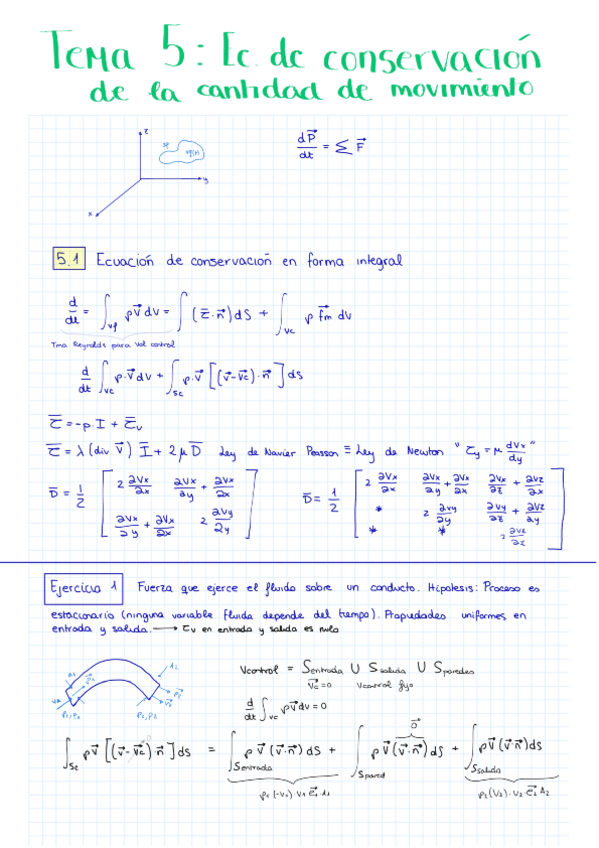 Tema 5: Ec. de conservación
de la cantidad de movimiento
z
y
x
dP⃗/dt = Σ F⃗
5.1 Ecuación de conservación en forma integral
d/dt = ∫_vf ρv⃗ dv = ∫ (τ̿·n⃗) dS + ∫_vc ρ f⃗m dv
Tma Reynolds para vol control
d/dt ∫_vc ρ·v⃗ dv + ∫_Sc ρ·v⃗ [(v⃗-v⃗c)·n⃗] ds
τ̿ = -p·I + τ̿v
τ̿ = λ (div v⃗) I̿ + 2μ D̿ Ley de Navier Poasson ≡ Ley de Newton " τy = μ dVx/dy "
D̿ = 1/2 [ 2 ∂Vx/∂x   ∂Vx/∂y + ∂Vx/∂x ; ∂Vx/∂y + ∂Vx/∂x   2 ∂Vy/∂y ]
D̿ = 1/2 [ 2 ∂Vx/∂x   ∂Vx/∂y + ∂Vx/∂x   ∂Vx/∂z + ∂Vz/∂x ; *   2 ∂Vy/∂y   ∂Vy/∂z + ∂Vz/∂y ; *   *   2 ∂Vz/∂z ]
Ejercicio 1 Fuerza que ejerce el fluido sobre un conducto. Hipotesis: Proceso es
estacionario (ninguna variable fluida depende del tiempo). Propiedades uniformes en
entrada y salida. → τv en entrada y salida es nulo
A1
A2
ρ1, P1
ρ2, P2
Vcontrol = Sentrada U Ssalida U Sparedes
v⃗c = 0 Vcontrol fijo
d/dt ∫_vc ρv⃗ dv = 0
∫_Sc ρv⃗ [(v⃗-v⃗c)·n⃗] ds = ∫_Sentrada ρv⃗ (v⃗·n⃗) dS + ∫_Spared ρv⃗ (v⃗·n⃗) dS + ∫_Ssalida ρv⃗ (v⃗·n⃗) ds
0⃗
ρ1 (-V1)·V1 e⃗1·A1
ρ2 (V2)·V2·e⃗2 A2